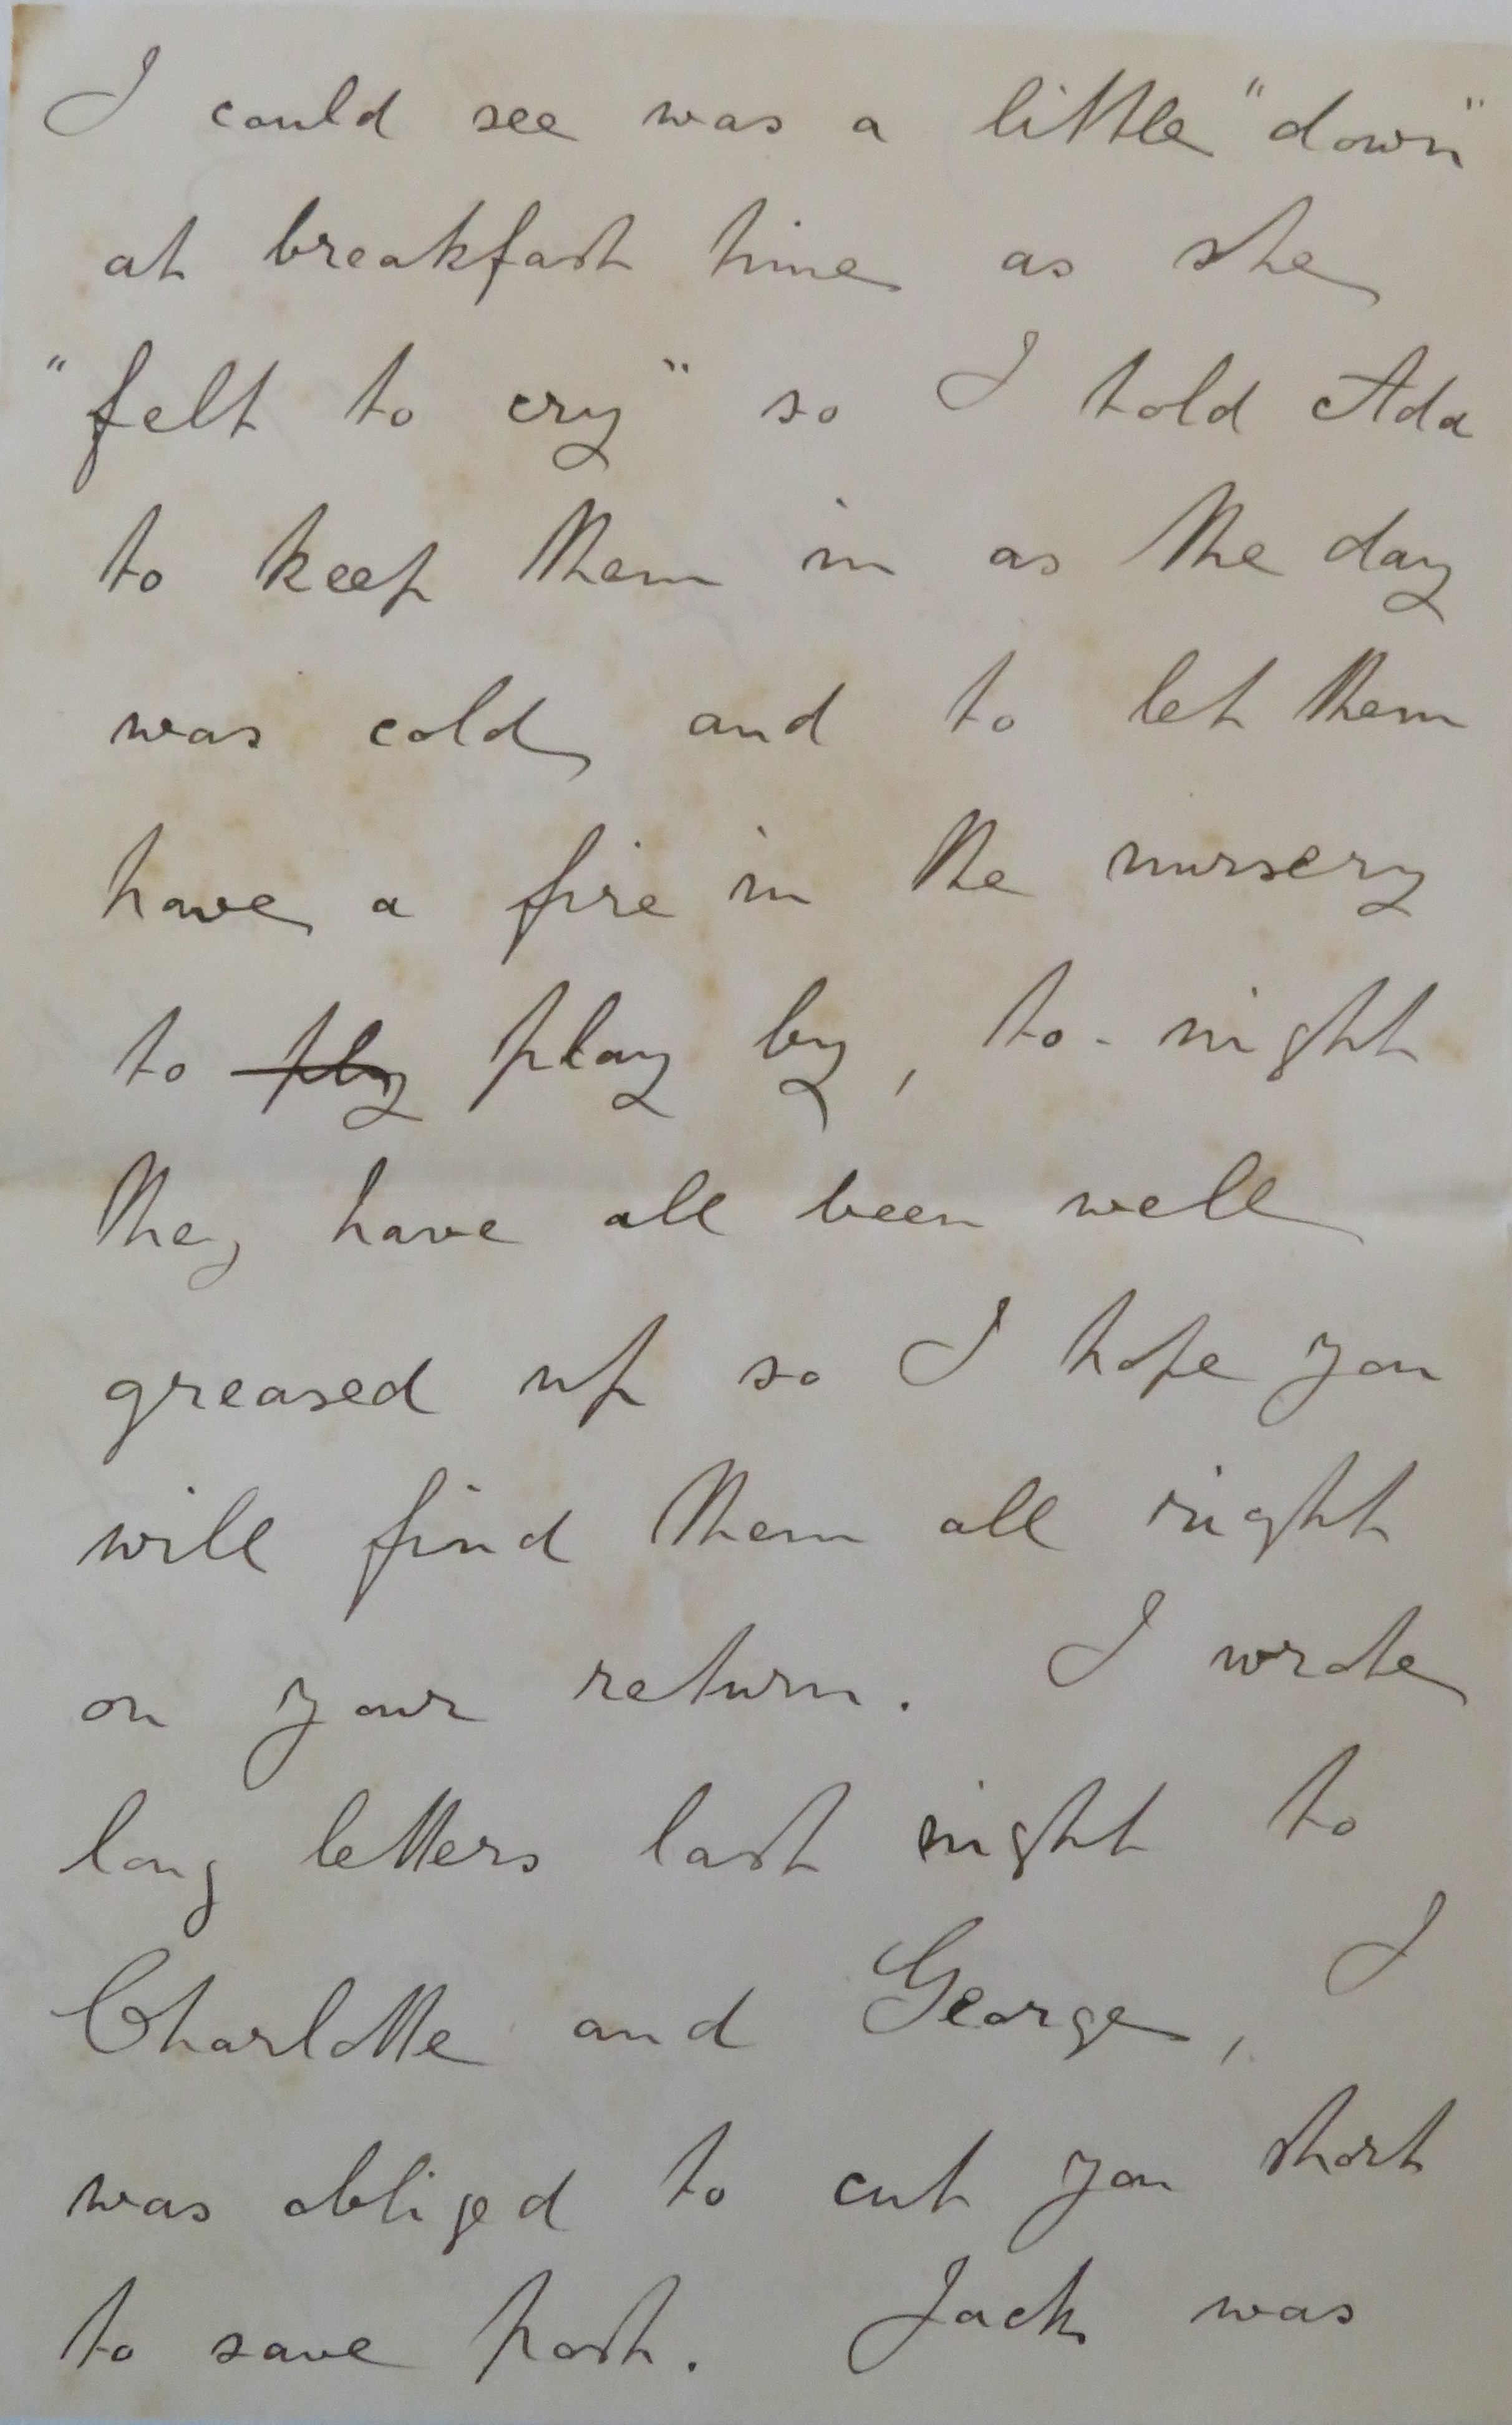 I could see was a little "down"
at breakfast time as she
"felt to cry" so I told Ada
to keep them in as the day
was cold and to let them
have a fire in the nursery
to ply play by, to-night
they have all been well
greased up so I hope you
will find them all right
on your return. I wrote
long letters last night to
Charlotte and George, I
was obliged to cut you short
to save post. Jack was